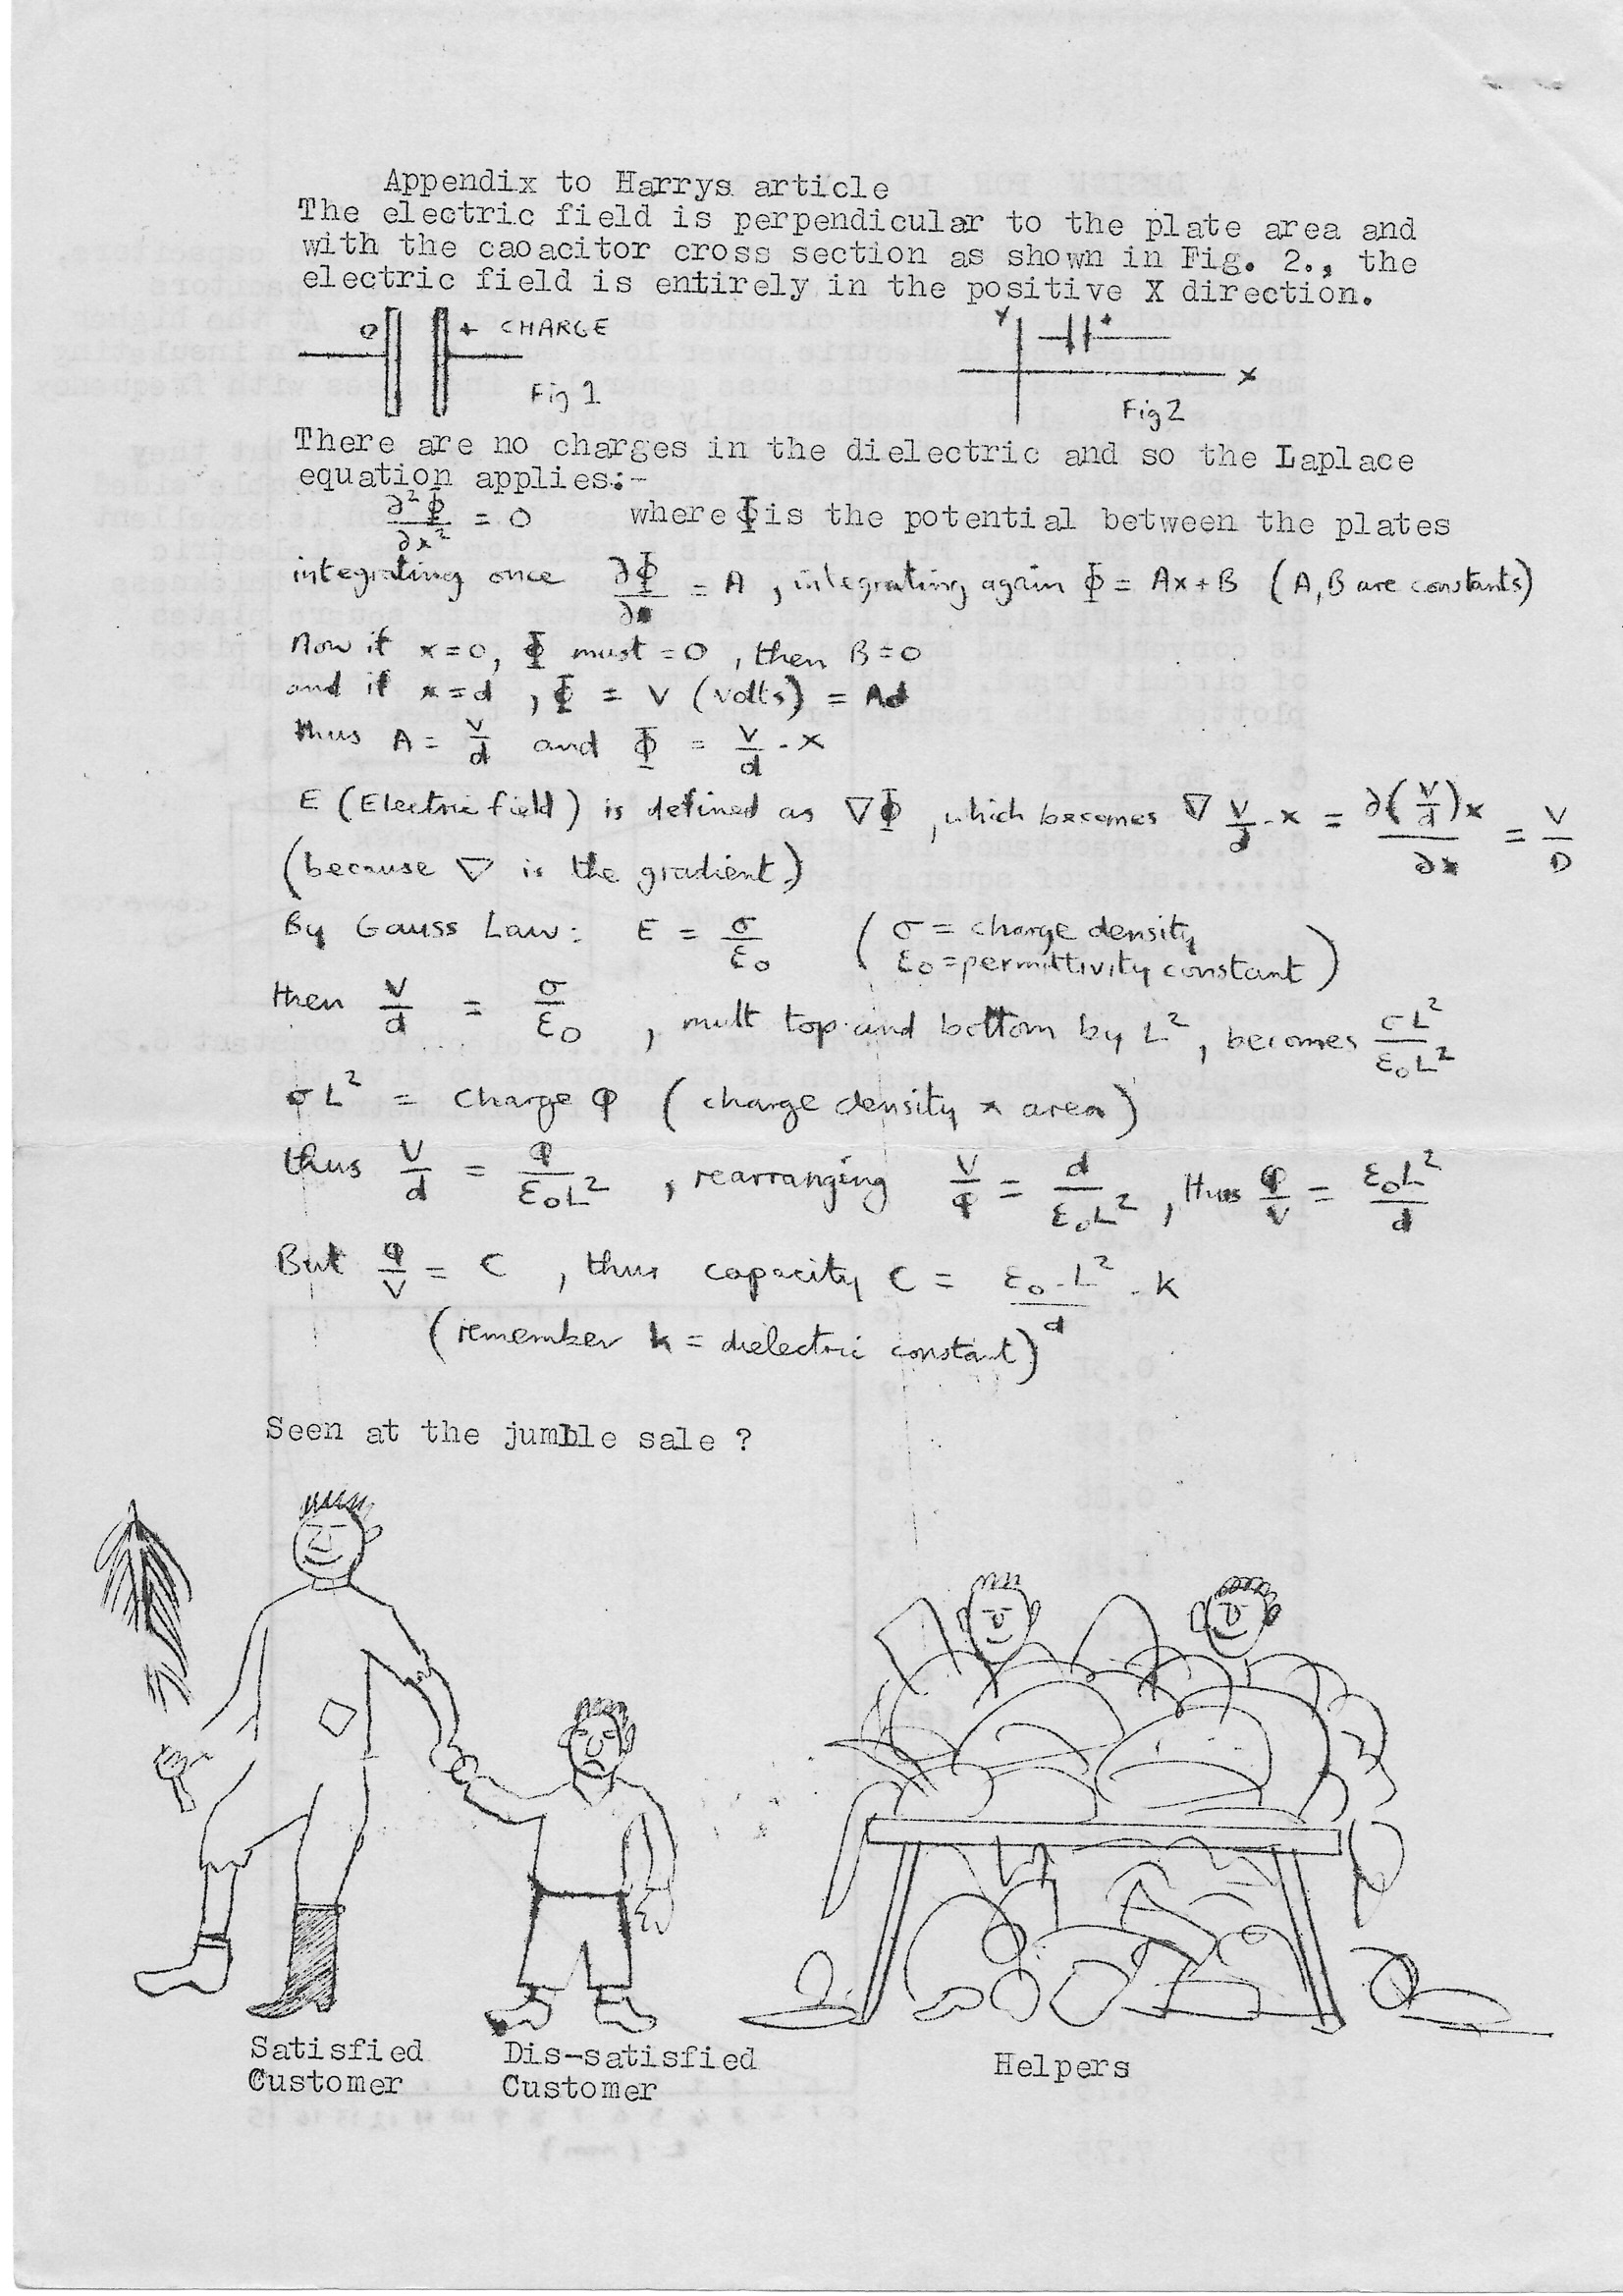 Appendix to Harrys article
The electric field is perpendicular to the plate area and
with the caoacitor cross section as shown in Fig. 2., the
electric field is entirely in the positive X direction.
O + CHARGE
Fig 1
Y + X
Fig 2
There are no charges in the dielectric and so the Laplace
equation applies:-
∂²Φ/∂x² = 0 where Φ is the potential between the plates
integrating once ∂Φ/∂x = A , integrating again Φ = Ax + B (A, B are constants)
Now if x = 0, Φ must = 0 , then B = 0
and if x = d , Φ = V (volts) = Ad
thus A = V/d and Φ = V/d . x
E (Electric field) is defined as ∇Φ , which becomes ∇ V/d . x = ∂(V/d)x/∂x = V/D
(because ∇ is the gradient.)
By Gauss Law: E = σ/ε₀ (σ = charge density
ε₀ = permittivity constant)
then V/d = σ/ε₀ , mult top and bottom by L², becomes σL²/ε₀L²
σL² = charge φ (charge density x area)
thus V/d = φ/ε₀L² , rearranging V/φ = d/ε₀L² , thus φ/V = ε₀L²/d
But φ/V = C , thus capacity C = ε₀ . L²/d . K
(remember k = dielectric constant)
Seen at the jumble sale ?
Satisfied
Customer
Dis-satisfied
Customer
Helpers